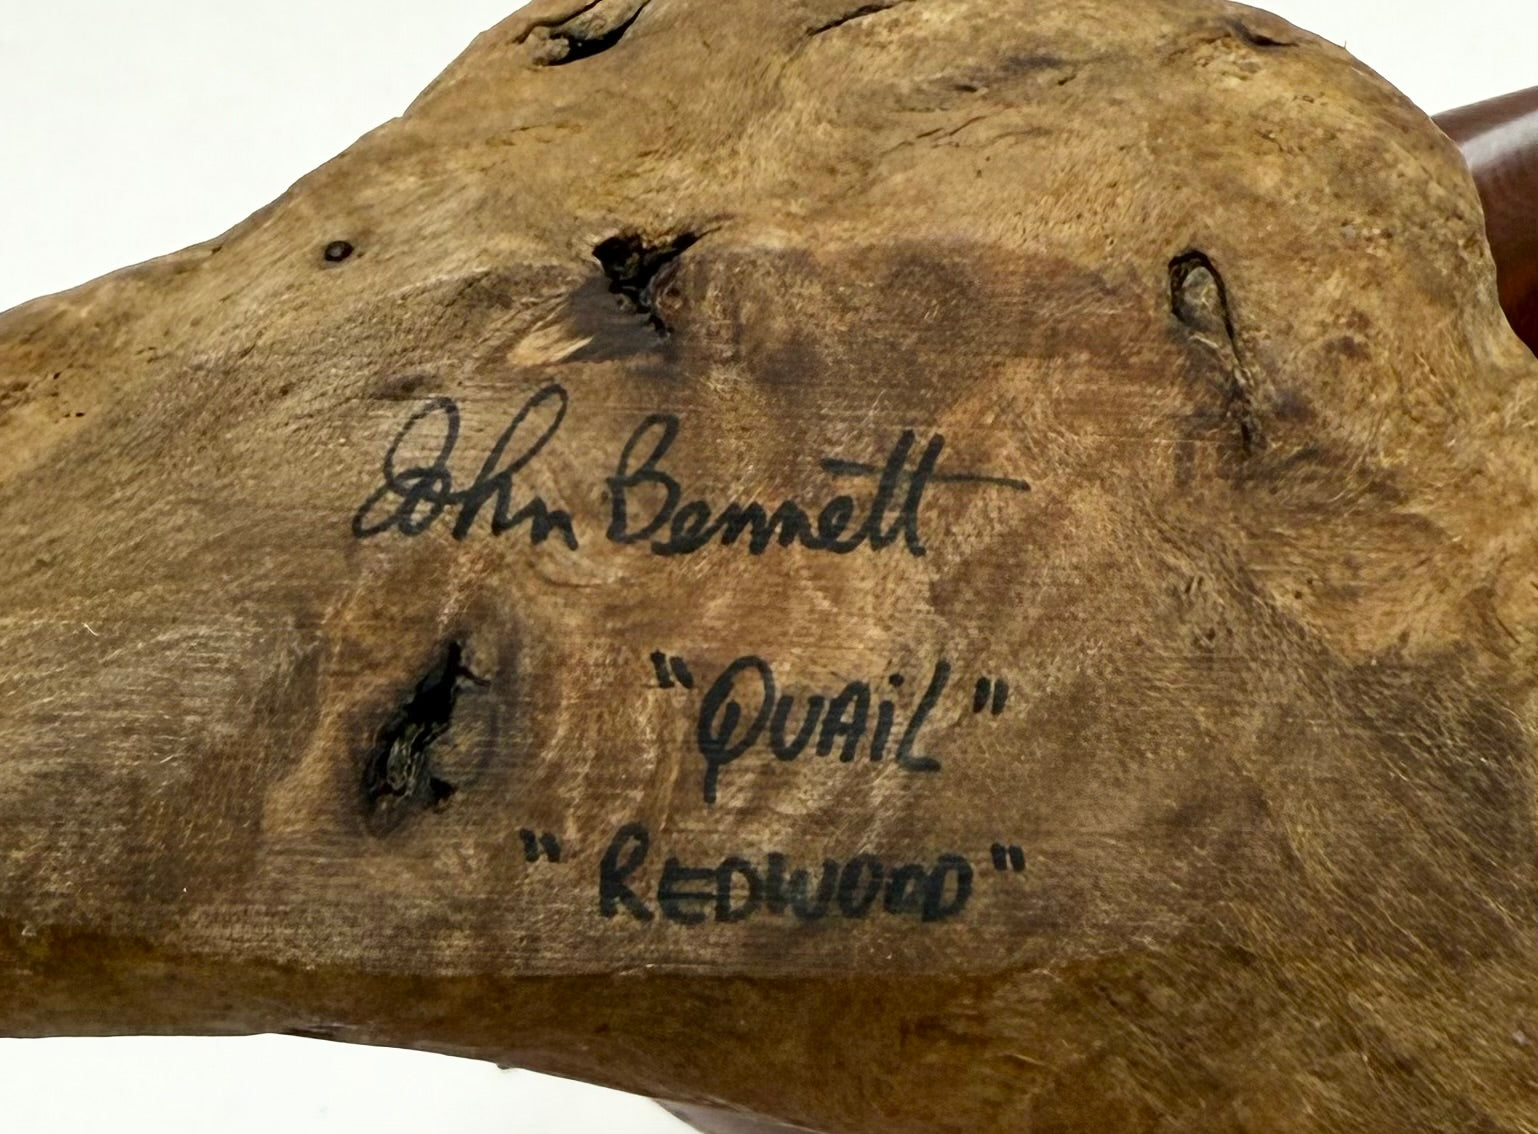 John Bennett
"QUAiL"
"REDWOOD"